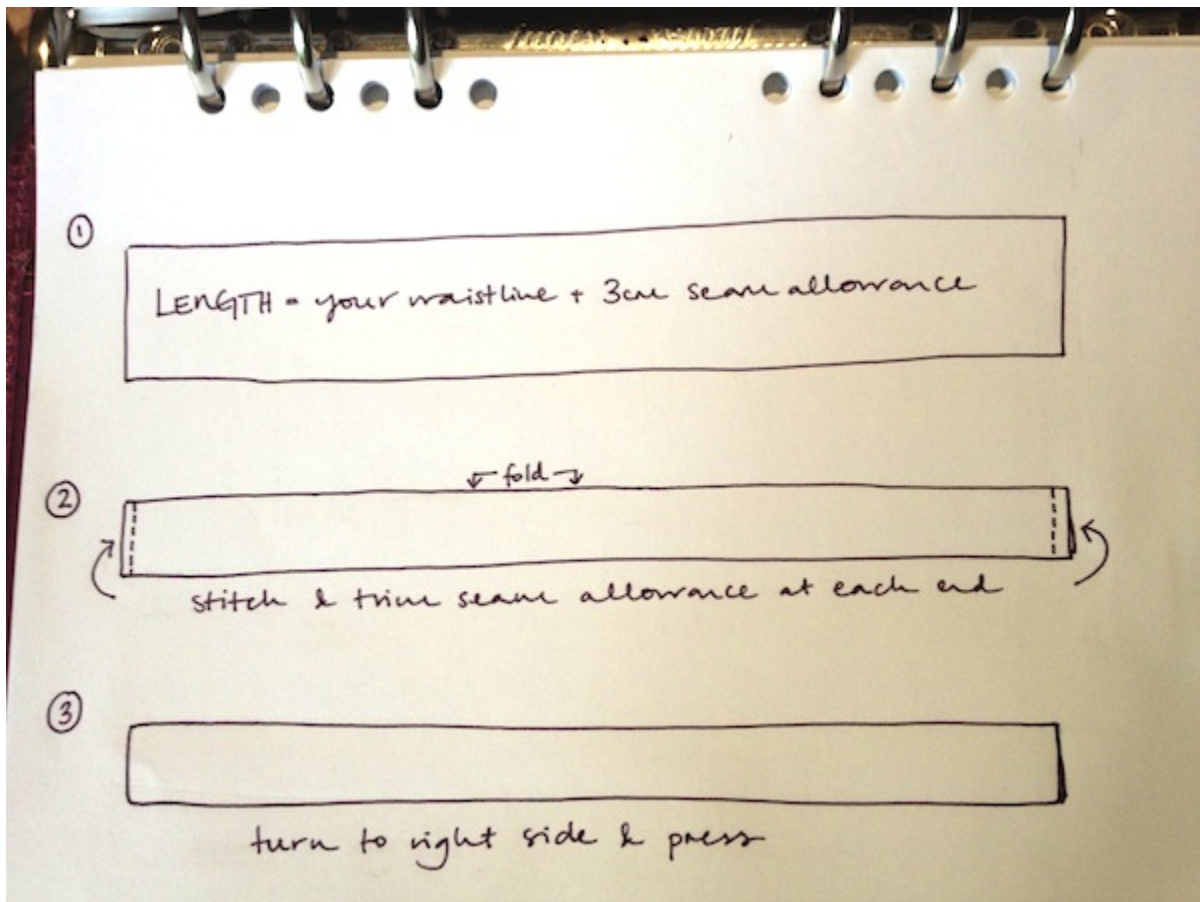 ①
LENGTH = your waistline + 3cm seam allowance
②
fold
stitch & trim seam allowance at each end
③
turn to right side & press